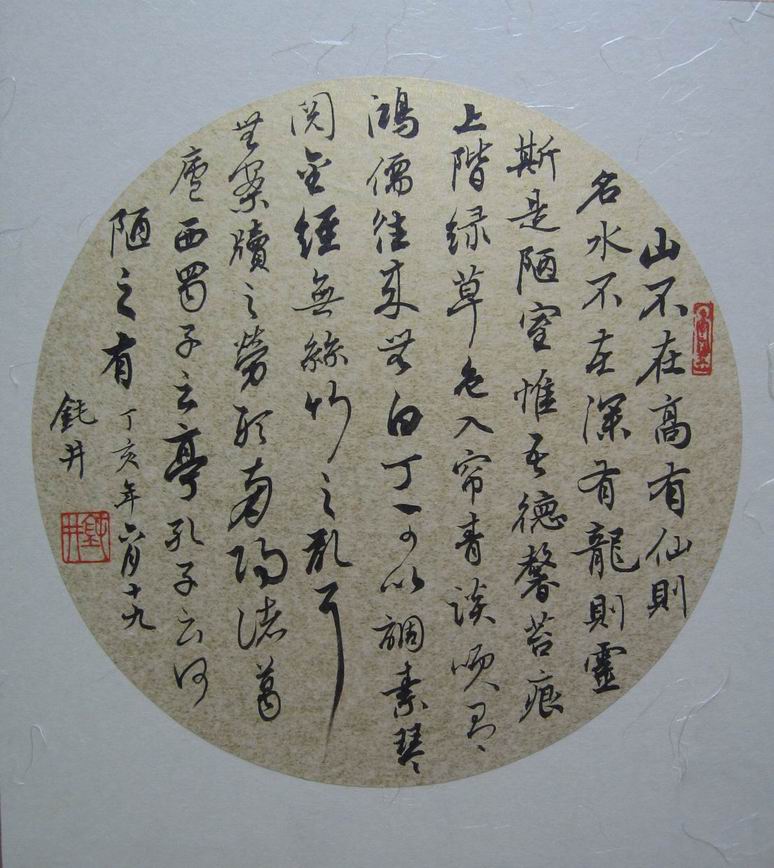 山不在高有仙則
名水不在深有龍則靈
斯是陋室惟吾德馨苔痕
上階绿草色入帘青談咲
鴻儒往来無白丁可以調素琴
閲金經無絲竹之乱耳
無案牘之勞形南陽诸葛
廬西蜀子云亭孔子云何
陋之有 丁亥年六月十九
鈍井
鈍井